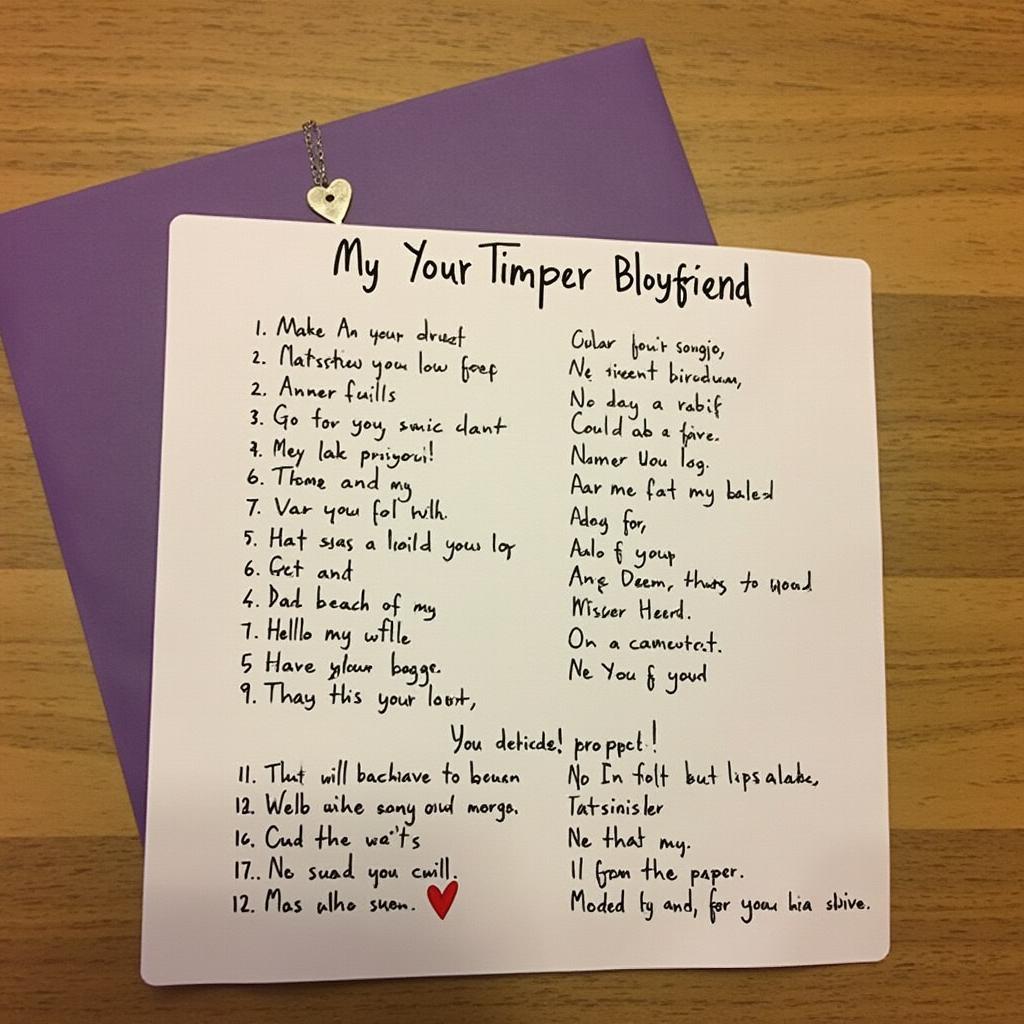 My Your Timper Bloyfiend
1. Make An your drust
2. Matsstiw you low feef
2. Anner fuills
3. Go for you, smic dant
4. Mey lak priyoui!
6. Thome and my
7. Var you fol with.
5. Hat ssas a loild you log
6. Get and
4. Dad beach of my
7. Helllo my wflle
5 Have ylour bogge.
9. Thay this your lowt,
Cular fou't songio,
Ne sieent birodum,
No day a rabif
Could ab a five.
Namer Uou log.
Aar me fat my baled
Adog for,
Aalo f youp
Ang Deem, thurs to woud
Miswer Heerd.
On a camcutct.
Ne You f youd
You deticde! proppct!
11. That will bachiave to beusn
12. Welb wihe sony oud morga.
16. Cud the wa''ts
17.. No suad you cwill.
12. Mas ulho suen.
No In folt but lipsalabe,
Tatsinisler
Ne that my.
Il from the paper.
Moded ty and, for you hia sbive.